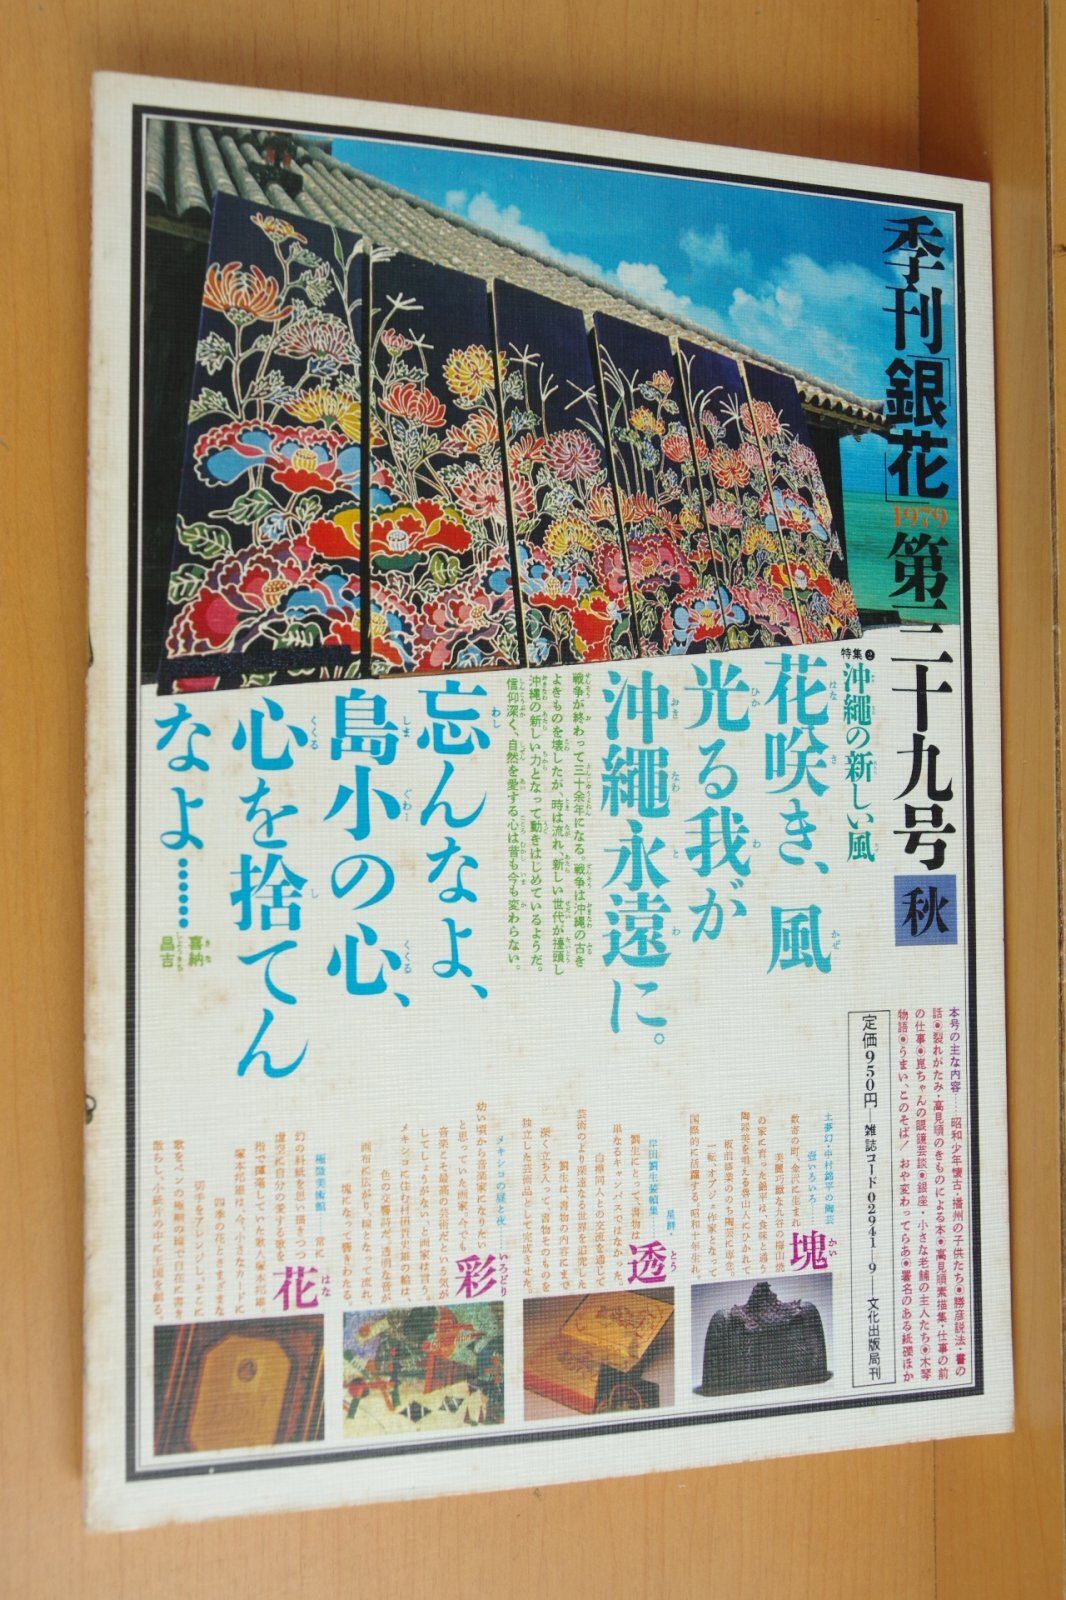 季刊「銀花」1979第三十九号 秋
本号の主な内容……昭和少年懐古・播州の子供たち◉勝彦説法・書の
話◉裂れがたみ・高見順のきものによる本◉高見順素描集・仕事の前
の仕事◉崑ちゃんの眼鏡芸談◉銀座・小さな老舗の主人たち◉木琴
物語◉うまい、このそば! おや変わってらあ◉署名のある紙礫ほか
定価950円―雑誌コード02941-9―文化出版局刊
特集❷
沖縄の新しい風
花咲き、風
光る我が
沖縄永遠に。
戦争が終わって三十余年になる。戦争は沖縄の古き
よきものを壊したが、時は流れ、新しい世代が擡頭し
沖縄の新しい力となって動きはじめているようだ。
信仰深く、自然を愛する心は昔も今も変わらない。
忘んなよ、
島小の心、
心を捨てん
なよ……
喜納
昌吉
土夢幻・中村錦平の陶芸
塊
数寄の町、金沢に生まれ
国際的に活躍する昭和十年生れ。
岸田劉生装幀集
透
劉生にとって、書物は
単なるキャンバスではなかった。
白樺同人との交流を通じて
芸術のより深遠なる世界を追究した
劉生は、書物の内容にまで
深く立ち入って、書物そのものを
独立した芸術品として完成させた。
メキシコの昼と夜
彩
幼い頃から音楽家になりたい
と思っていた画家。今でも
音楽こそ最高の芸術だという気が
してしょうがない、と画家は言う。
色の交響詩だ。透明な音が
画布に広がり、線となって流れ、
塊となって響きわたる
極微美術館
花
常に
幻の料紙を思い描きつつ
虚空に自分の愛する歌を
指で揮毫していた歌人塚本邦雄。
塚本邦雄は今、小さなカードに
四季の花とさまざまな
切手をアレンジし、そこに
歌をペンの極細の線で自在に書き
散らし、小紙片の中に王国を創る。